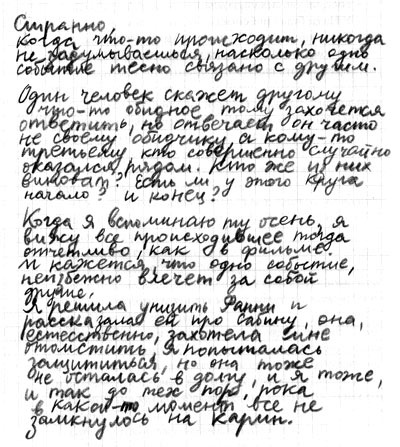 Странно,
когда что-то происходит, никогда
не задумываешься, насколько одно
событие тесно связано с другим.
Один человек скажет другому
что-то обидное, тому захочется
ответить, но отвечает он часто
не своему обидчику, а кому-то
третьему, кто совершенно случайно
оказался рядом. Кто же из них
виноват? Есть ли у этого круга
начало? и конец?
Когда я вспоминаю ту осень, я
вижу все происходившее тогда
отчетливо, как в фильме.
И кажется, что одно событие,
неизбежно влечет за собой
другие.
Я решила унизить Фанни и
рассказала ей про Сабину, она,
естественно, захотела мне
отомстить, я попыталась
защититься, но она тоже
не осталась в долгу, и я тоже,
и так до тех пор, пока
в какой-то момент все не
замкнулось на Карин.